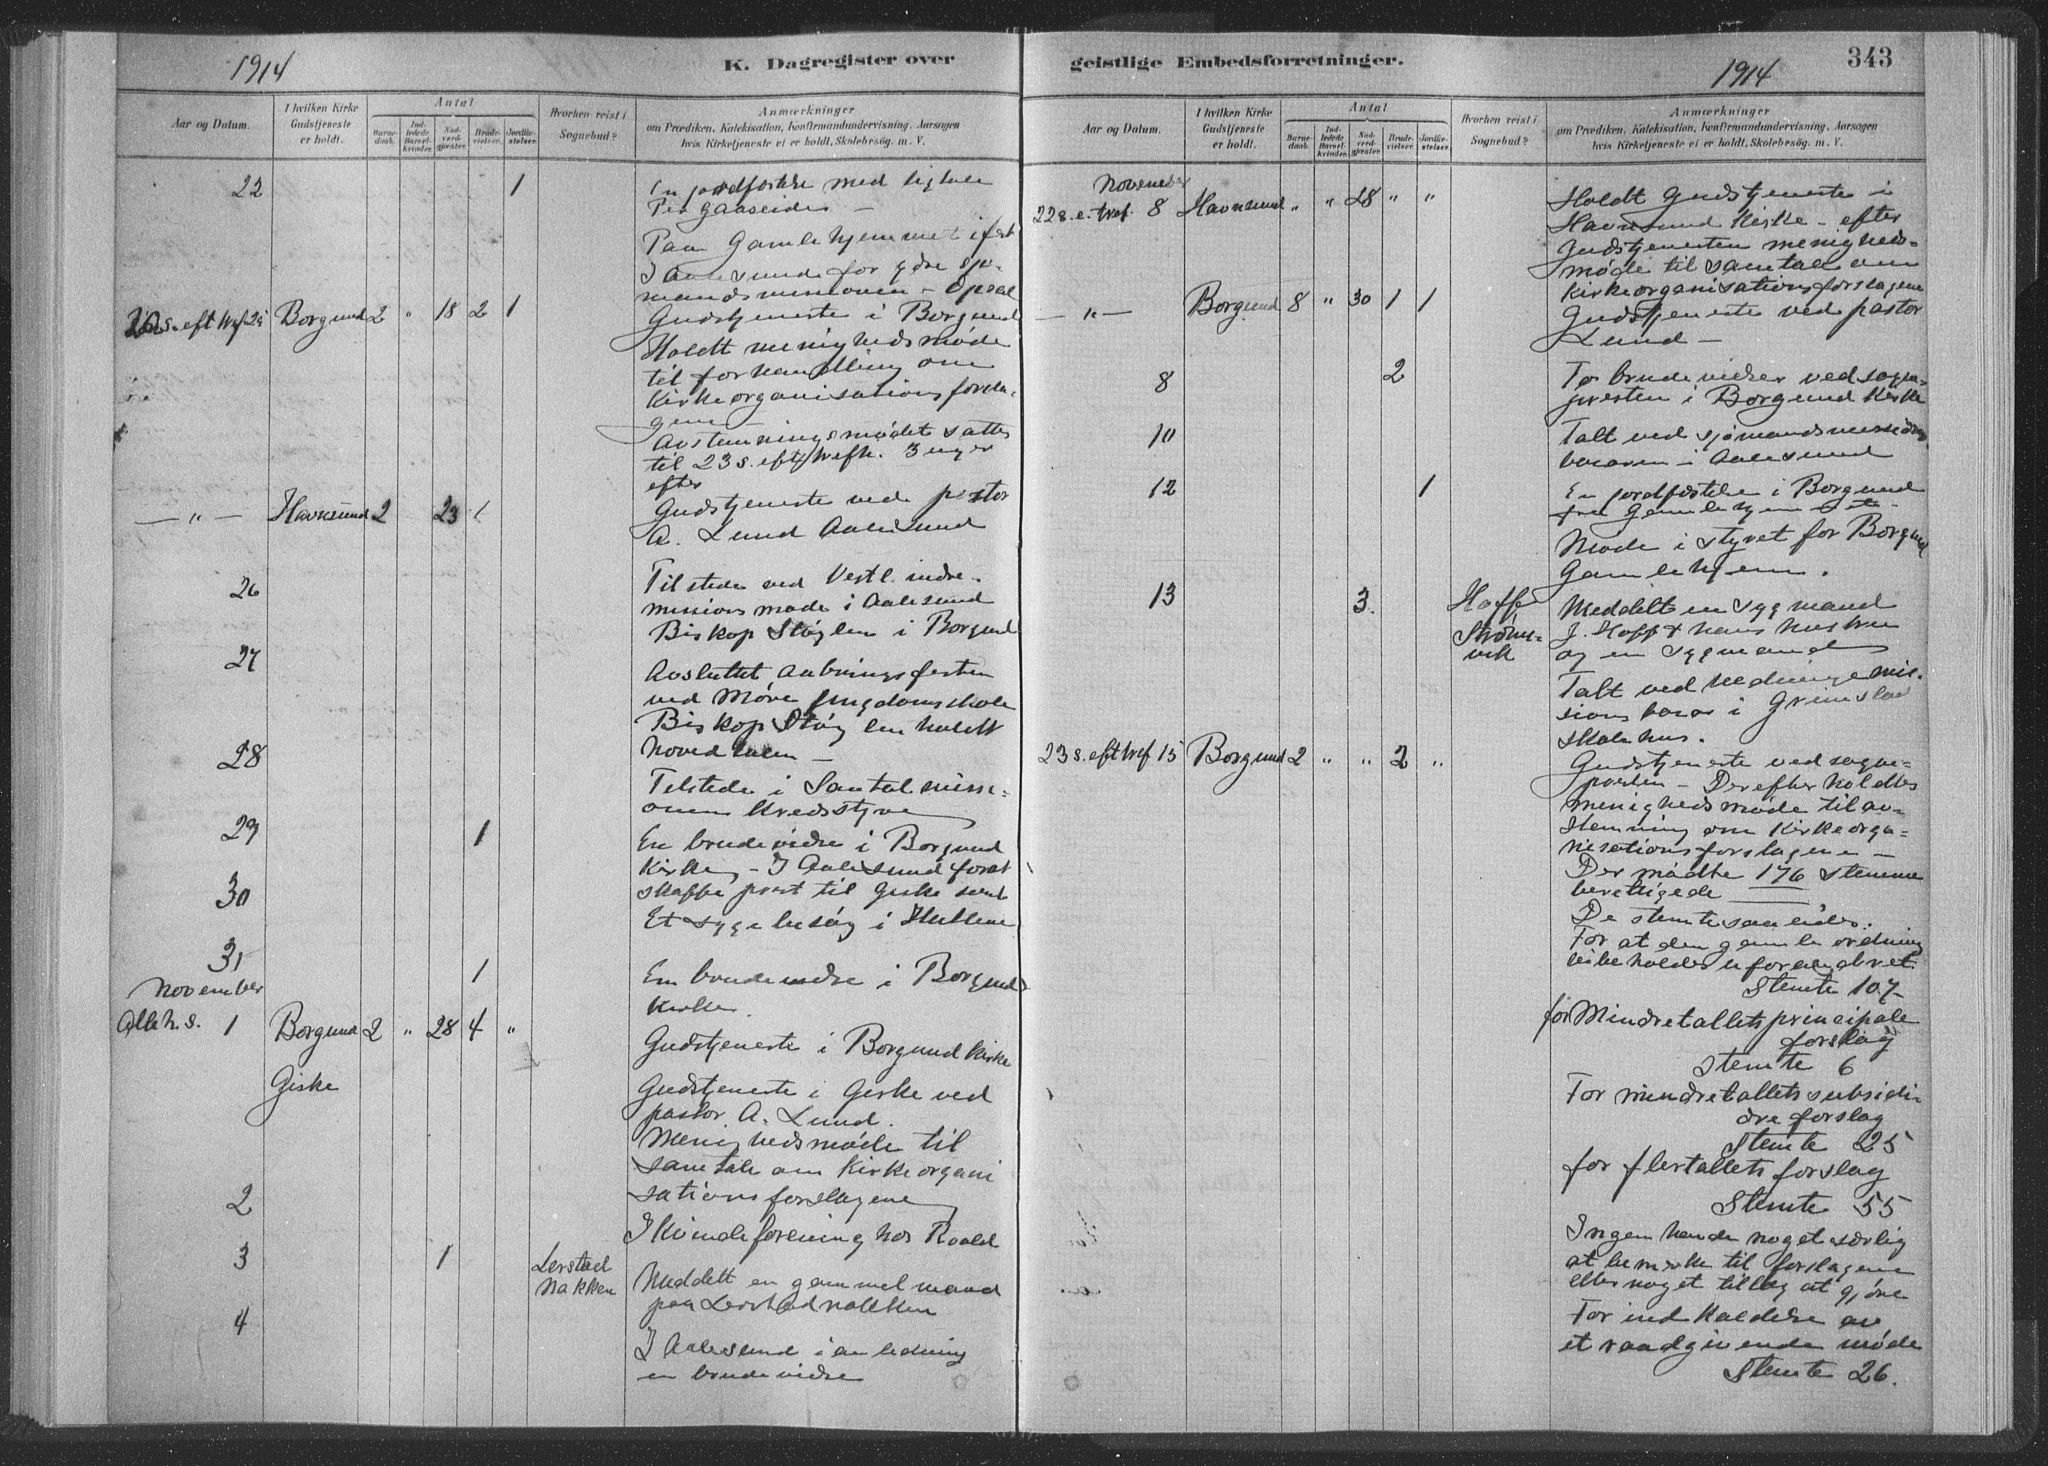 1914
K. Dagregister over
Aar og Datum.
I hvilken Kirke
Gudstjeneste
er holdt.
Antal
Barne-
daab.
Ind-
ledede
Barsel-
kvinder.
Nad-
verd-
gjæster.
Brude-
vielser.
Jordfæ-
stelser.
Hvorhen reist i
Sognebud?
Anmærkninger
om Prædiken, Katekisation, Konfirmandundervisning. Aarsagen
hvis Kirketjeneste ei er holdt, Skolebesøg. m. V.
22
1
En jordfæstelse med ligtale
Per Gaaseide –
Paa Gamlehjemmet i fest
I Aalesund for ydre sjø-
mandsmissionen –
s. eft tref 25 Borgund 2 " 18 2 1
Gudstjeneste i Borgund
Holdt menighedsmøde
til forhandling om
Kirkeorganisationsforsla-
gene
Avstemningsmødet sattes
til 23 s. eft trefh. 3 uger
efter
— " — Havnsund 2 23 1
Gudstjeneste ved pastor
A. Lund Aalesund
26
Tilstede ved Vestl. indre-
missions møde i Aalesund
Biskop Støylen i Borgund
27
Avsluttet aabningsfesten
ved Møre ungdomsskole
Biskop Støylen holdt
hovedtalen –
28
Tilstede i Santalmissi-
onens kredsstyre
29
1
En brudevielse i Borgund
Kirke – I Aalesund for at
skaffe prest til Giske sønd
30
Et sygebesøg i
31
1
En brudevielse i Borgund
Kirke.
November
Alleh. s. 1 Borgund 2 " 28 4 "
Gudstjeneste i Borgund Kirke
Giske
Gudstjeneste i Giske ved
pastor A. Lund.
Menighedsmøde til
samtale om Kirkeorgani
sationsforslagene
2
I Kvindeforening hos Roald
3
1
Lerstad
nakken
Meddelt en gammel mand
paa Lerstadnakken
4
I Aalesund i anledning
en brudevielse
geistlige Embedsforretninger.
1914
343
Aar og Datum.
I hvilken Kirke
Gudstjeneste
er holdt.
Antal
Barne-
daab.
Ind-
ledede
Barsel-
kvinder.
Nad-
verd-
gjæster.
Brude-
vielser.
Jordfæ-
stelser.
Hvorhen reist i
Sognebud?
Anmærkninger
om Prædiken, Katekisation, Konfirmandundervisning. Aarsagen
hvis Kirketjeneste ei er holdt, Skolebesøg. m. V.
November
22 s. e. tref. 8 Havnsund " " 28 " "
Holdt Gudstjeneste i
Havnsund Kirke – efter
Gudstjenesten menigheds-
møde til samtale om
Kirkeorganisationsforslagene
— " — Borgund 8 " 30 1 1
Gudstjeneste ved pastor
Lund –
8
2
To brudevielser ved sogne-
presten i Borgund Kirke
10
Talt ved sjømandsmissions
basaren i Aalesund
12
1
En jordfæstelse i Borgund
fra Gamlehjemmet –
Møde i styret for Borgund
Gamlehjem.
13
3.
Hoff
Strøms-
vik
Meddelt en sygmand
J. Hoff + hans hustru
og en sygmand
Talt ved hedningemis-
sions basar i Grimstad
skolehus.
23 s. eft tref 15 Borgund 2 " " 2 "
Gudstjeneste ved sogne-
presten – Derefter holdtes
menighedsmøde til av-
stemning om Kirkeorga-
nisationsforslagene –
Der mødte 176 stemme
berettigede
De stemte saaledes.
For at den gamle ordning
beholdes uforandret
Stemte 107
for Mindretallets principale
forslag
Stemte 6
For mindretallets subsidi
ære forslag
Stemte 25
for flertallets forslag
Stemte 55
Ingen havde noget særlig
at bemerke til forslagene
eller noget tillæg at gjøre
For indkaldelse av
et raadgivende møde
Stemte 26.